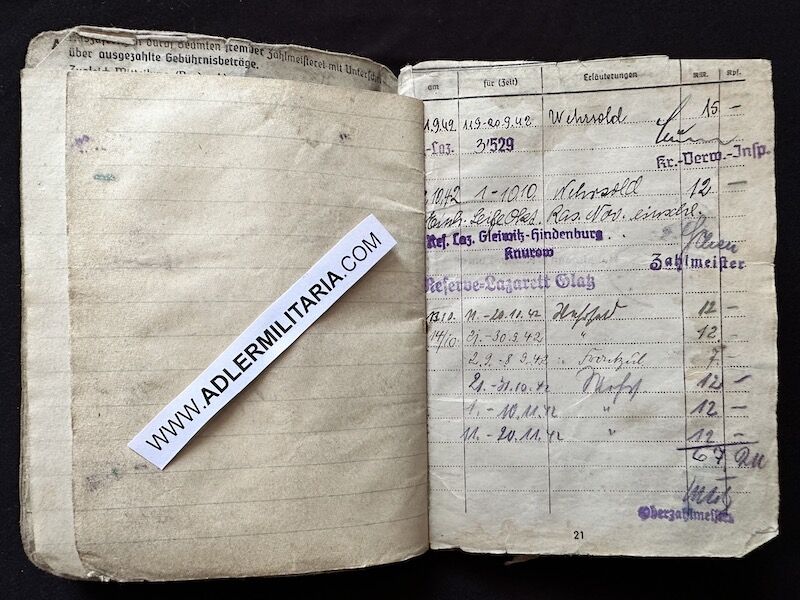 durch Beamten fremder Zahlmeisterei mit
über ausgezahlte Gebührnisbeträge.
WWW.ADLERMILITARIA.COM
am für (Zeit) Erläuterungen RM. Rpf.
1.9.42 11.9-20.9.42 Wehrsold 15 -
-Laz. 3'529
Kr.-Verw.-Insp.
10.42 1-10.10 Wehrsold 12 -
Nov.
Res. Laz. Gleiwitz-Hindenburg
Knurow
Zahlmeister
Reserve-Lazarett Glatz
13.10. 11.-20.10.42 12 -
14/10. 21.-30.9.42 " 12 -
2.9.-8.9.42 " 7 -
21.-31.10.42 12 -
1.-10.11.42 " 12 -
11.-20.11.42 " 12 -
67 RM
Oberzahlmeister
21